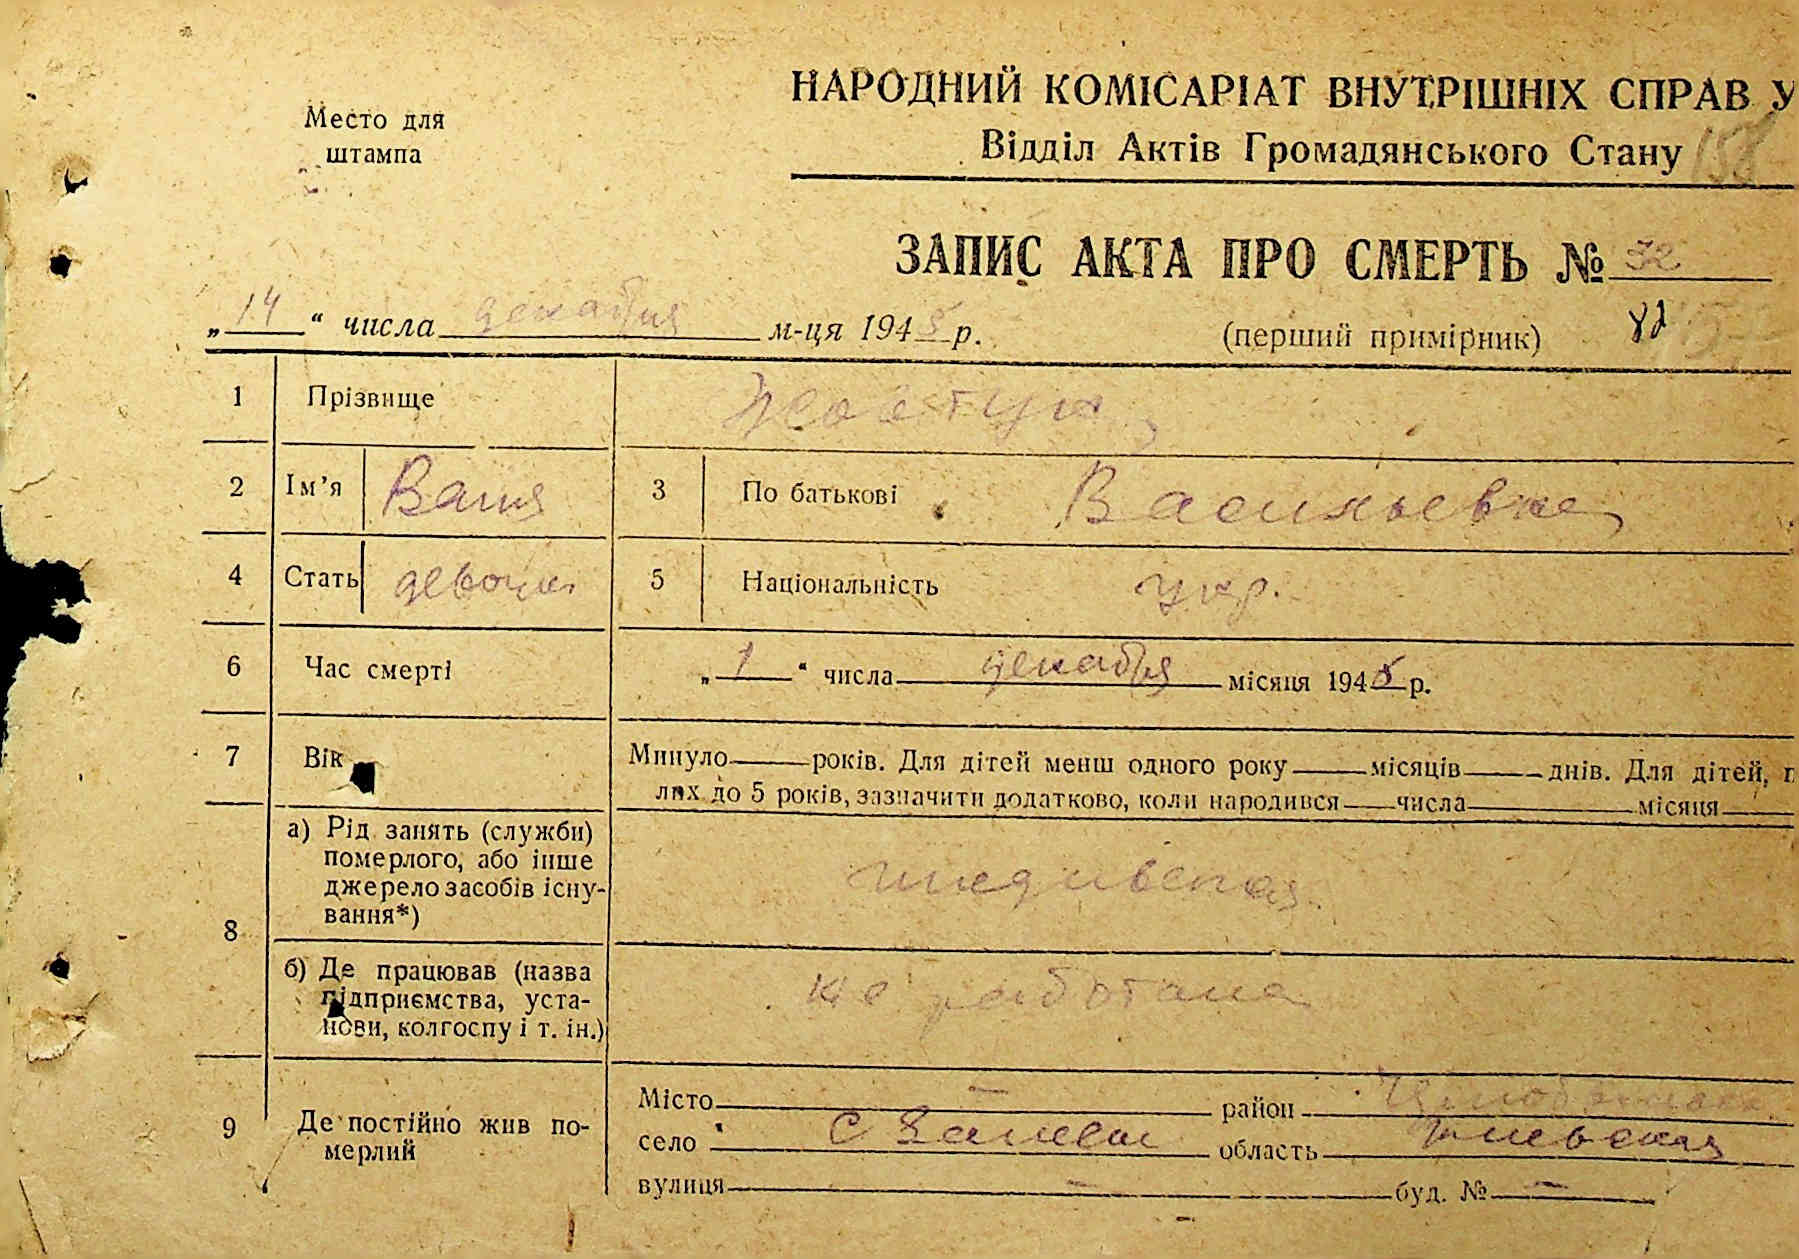 Место для
штампа
НАРОДНИЙ КОМІСАРІАТ ВНУТРІШНІХ СПРАВ У
Відділ Актів Громадянського Стану 158
ЗАПИС АКТА ПРО СМЕРТЬ № 72
„14“ числа декабря м-ця 1945 р.
(перший примірник) 82
1 Прізвище
2 Ім'я Ваня 3 По батькові Васильевна
4 Стать девочка 5 Національність укр.
6 Час смерті „1“ числа декабря місяця 1945 р.
7 Вік Минуло років. Для дітей менш одного року місяців днів. Для дітей, п
лих до 5 років, зазначити додатково, коли народився числа місяця
8 а) Рід занять (служби)
померлого, або інше
джерело засобів існу-
вання*)
иждивенка
б) Де працював (назва
підприємства, уста-
нови, колгоспу і т. ін.)
не работала
9 Де постійно жив по-
мерлий
Місто — район
село с область Киевская
вулиця — буд. № —